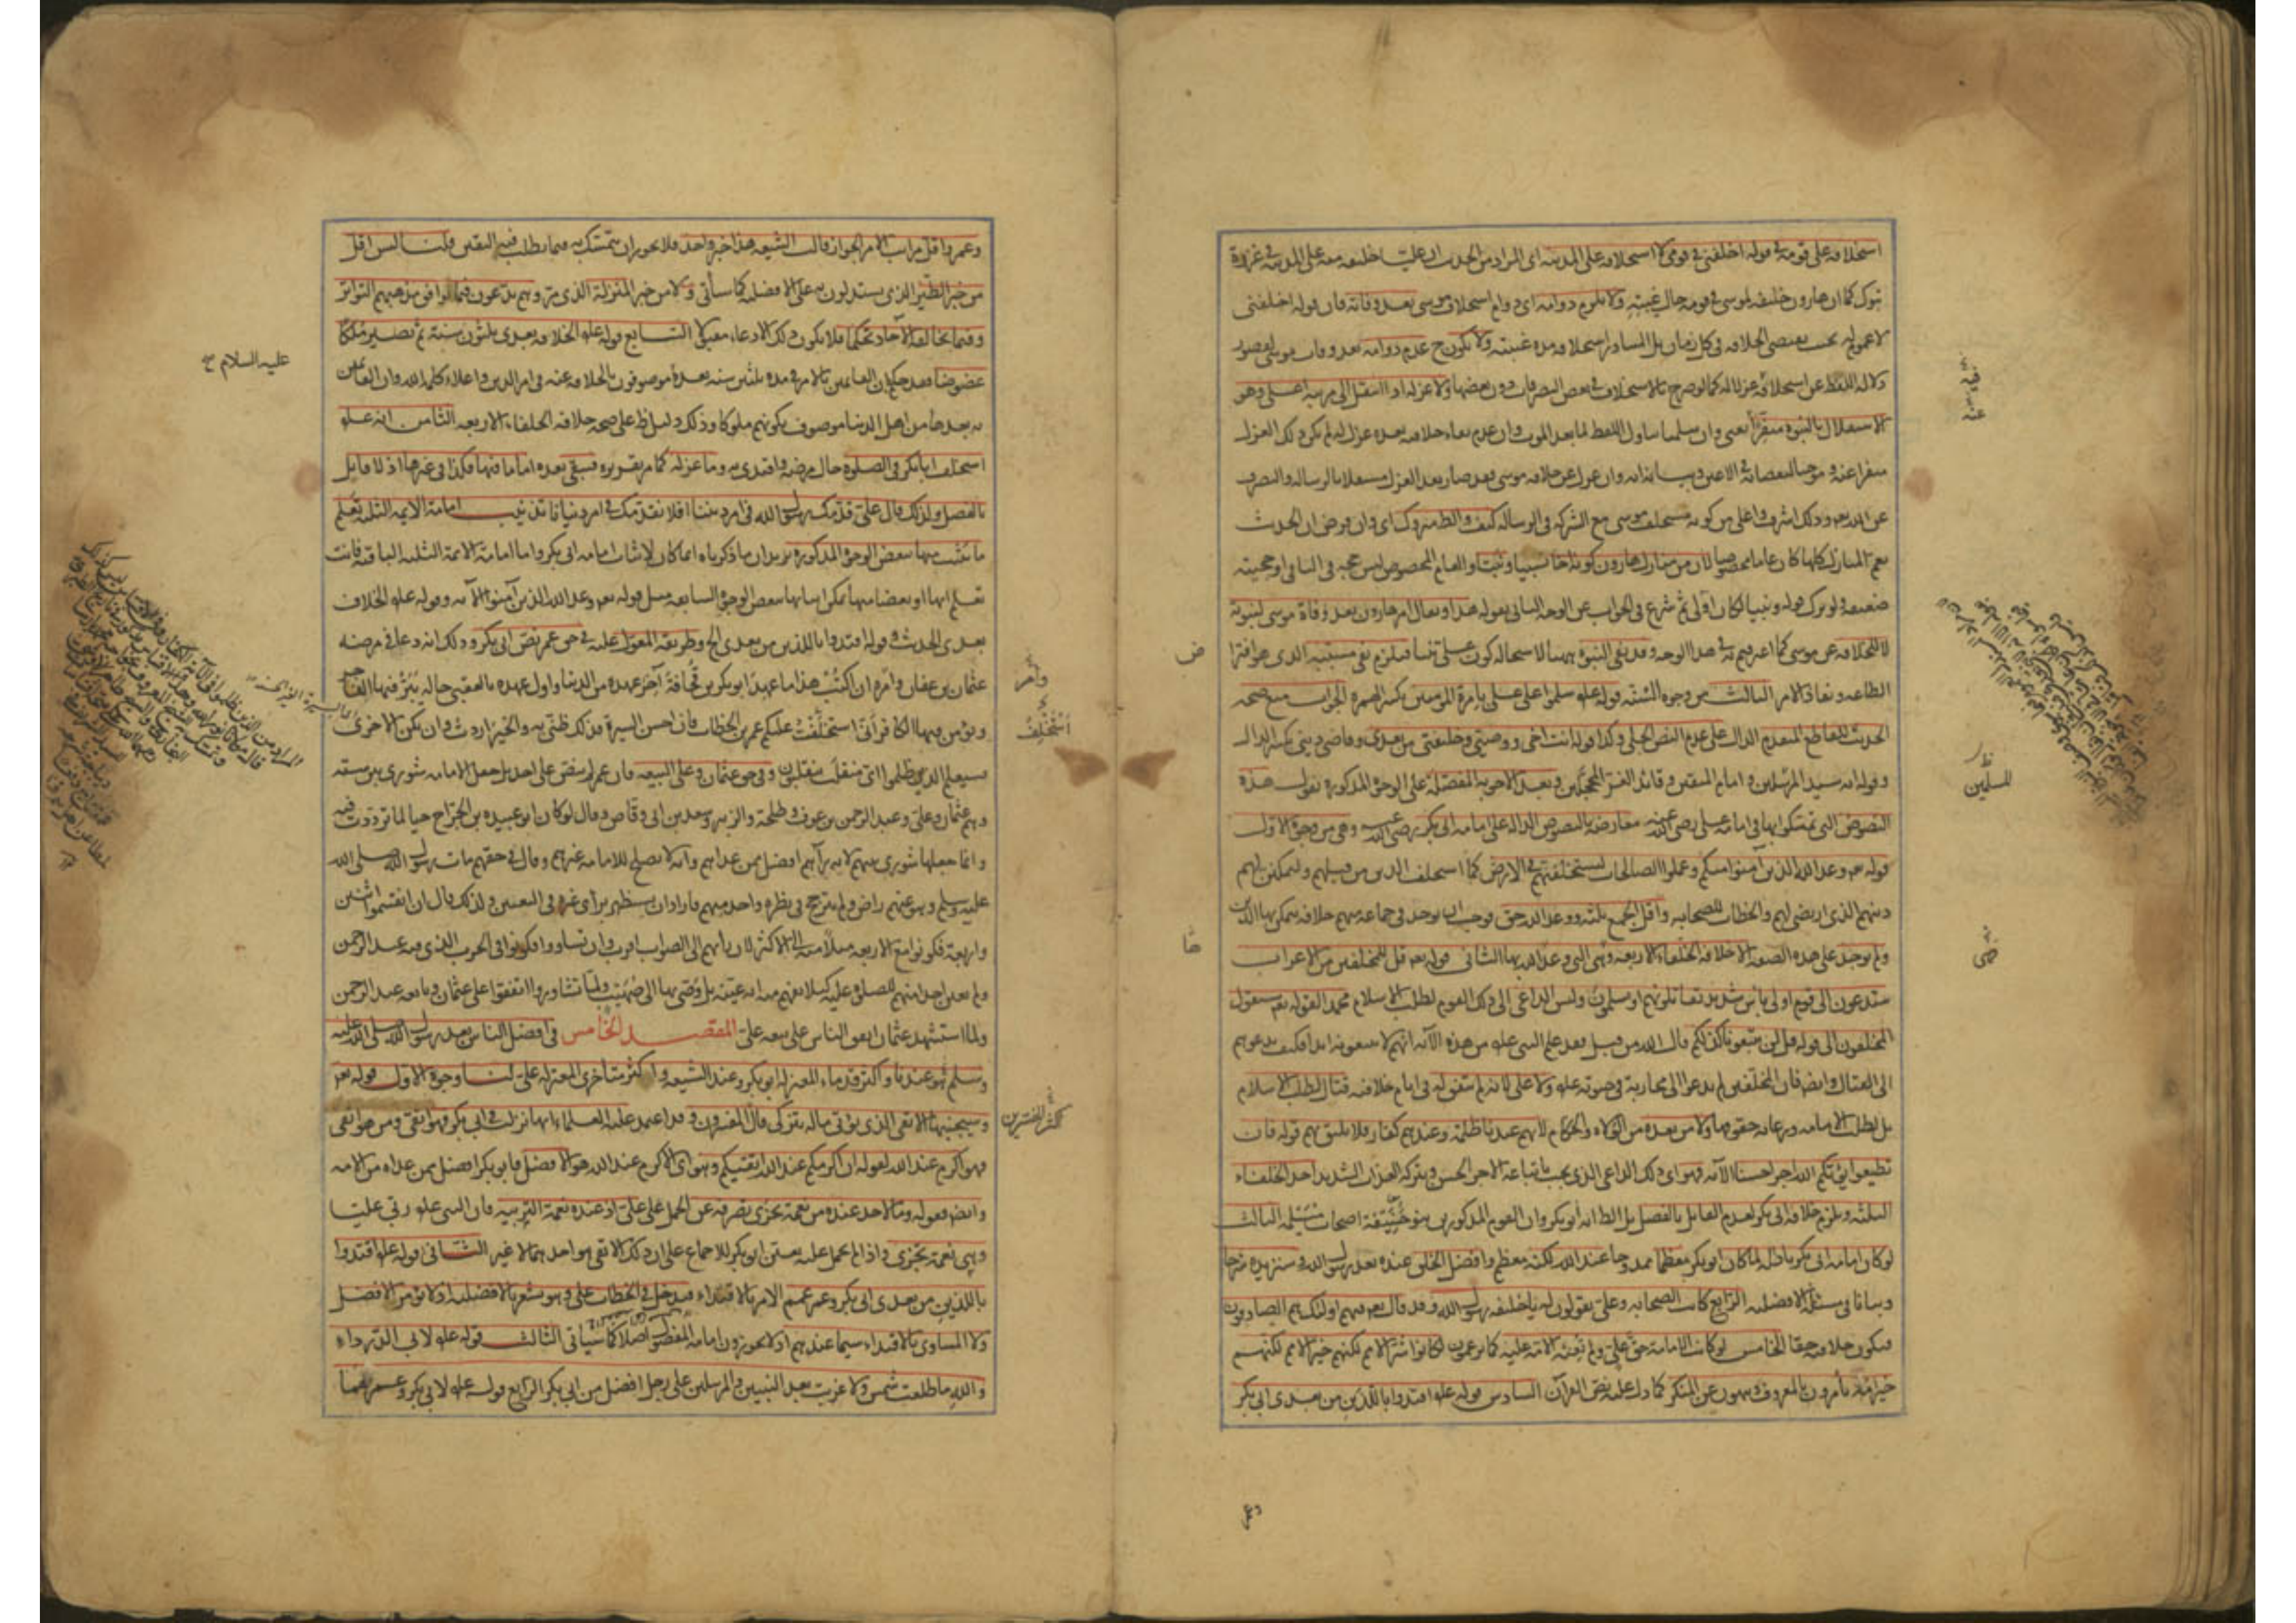 استخلافه على قومه في قوله اخلفني في قومي لا استخلافه على المدينة اى المراد من الحديث ان عليا خليفة منه على المدينة في غزوة
تبوك كما ان هارون خليفة لموسى في قومه حال غيبته ولا يلزم دوامه اى دوام استخلاف موسى بعد وفاته فان قوله اخلفنى
لا عموم له بحيث يقتضى الخلافة فى كل زمان بل المتبادر استخلافه مدة غيبته ولا يكون ح عدم دوامه بعد وفات موسى لقصور
دلالة اللفظ عن استخلافه عزلا له كما لو صرح بالاستخلاف في بعض التصرفات دون بعضها ولا عزله اذا انتقل الى مرتبة اعلى وهو
الاستقلال بالنبوة منفرا يعنى وان سلمنا تناول اللفظ لما بعد الموت وان عدم بقاء خلافته بعده عزل له لم يكن ذلك العزل
منفرا عنه و موجبا لنقصانه في الاعين وبيانه انه وان عزل عن خلافة موسى فقد صار بعد العزل مستقلا بالرسالة والتصرف
عن الله تع وذلك اشرف واعلى من كونه مستخلف موسى مع الشركة فى الرسالة كيف والظ متروك اى وان فرض ان الحديث
يعم المنازل كلها كان عاما مخصوصا لان من منازل هارون كونه اخا نسبيا ونبيا والعام المخصوص ليس حجة فى الباقى او حجيته
ضعيفة ولو ترك قوله ونبيا لكان اولى ثم شرع فى الجواب عن الوجه الثانى بقوله هذا ونفاذ امر هارون بعد وفاة موسى لنبوته
لا للخلافة عن موسى كما اعترفتم به في هذا الوجه وقد نفى النبوة ههنا لاستحالة كون على نبيا فيلزم نفى مسببه الذى هو افتراض
الطاعة ونفاذ الامر الثالث من وجوه السنة قوله علم سلموا على على بامرة المومنين بكسر الهمزة الجواب منع صحة
الحديث للقاطع المتقدم الدال على عدم النص الجلى وكذا قوله انت اخى ووصيتى وخليفتى من بعدى وقاضى دينى بكسر الدال
وقوله انه سيد المرسلين و امام المتقين وقائد الغر المحجلين وبعد الاجوبة المفصلة على الوجوه المذكورة نقول هذه
النصوص التى تمسكوا بها فى امامة على رضى الله عنه معارضة بالنصوص الدالة على امامة ابى بكر رضى الله عنه وهى من وجوه الاول
قوله تع وعد الله الذين آمنوا منكم وعملوا الصالحات ليستخلفنهم في الارض كما استخلف الذين من قبلهم وليمكنن لهم
دينهم الذى ارتضى لهم والخطاب للصحابة واقل الجمع ثلثة ووعد الله حق فوجب ان يوجد فى جماعة منهم خلافة يتمكن بها الدين
ولم يوجد على هذه الصفة الا خلافة الخلفاء الاربعة وهى التى وعد الله بها الثانى قوله تع قل للمخلفين من الاعراب
ستدعون الى قوم اولى باس شديد تقاتلونهم او يسلمون وليس الداعى الى ذلك القوم لطلب الاسلام محمد القوله تع سيقول
المخلفون الى قوله قل لن تتبعونا كذلكم قال الله من قبل فقد علم النبى علم من هذه الآية انهم لا يتبعونه ابدا فكيف يدعوهم
الى القتال وايض فان المخلفين لم يدعوا الى محاربة فى حيوته علم ولا على لانه لم يتفق له فى ايام خلافته قتال لطلب الاسلام
بل لطلب الامامة ورعاية حقوقها ولا من بعده من الولاة والحكام لانهم عندنا ظلمة وعندهم كفار فلا يليق بهم قوله فان
تطيعوا يؤتكم الله اجرا حسنا الآية فهو اى ذلك الداعى الذى يجب باتباعه الاجر الحسن وبتركه العذاب الشديد احد الخلفاء
الثلثة ويلزم خلافة ابى بكر لعدم القايل بالفصل بل الظ انه ابو بكر وان القوم المذكورين بنو حنيفة اصحاب مسيلمة الثالث
لو كان امامة ابى بكر باطلة لما كان ابو بكر معظما ممدوحا عند الله لكنه معظم وافضل الخلق عنده بعد رسول الله و سنزيده شرحا
وبيانا فى مسئلة الافضلية الرابع كانت الصحابة وعلى يقولون له يا خليفة رسول الله وقد قال تع فيهم اولئك هم الصادقون
فيكون خلافته حقا الخامس لو كانت الامامة حق على ولم تعنه الامة عليه كما تزعمون لكانوا شر الامم لكنهم خير الامم لكنهم
خير امة يأمرون بالمعروف وينهون عن المنكر كما دل عليه نص القرآن السادس قوله علم اقتدوا باللذين من بعدى ابى بكر
وعمر
للمسلمين
وعمر واقل مراتب الامر الجواز قالت الشيعة هذا خبر واحد فلا يجوز ان يتمسك به فيما يطلب فيه اليقين قلنا ليس اقل
من خبر الطير الذى يستدلون به على الافضلية كما سيأتى ولا من خبر المنزلة الذى مر وهم يدعون فيما يوافق مذهبهم التواتر
وفيما يخالفه الآحاد تحكما فلا يكون ذلك الادعاء مقبولا السابع قوله علم الخلافة بعدى ثلثون سنة ثم تصير ملكا
عضوضا فقد حكم بان القائمين بالامر في مدة ثلثين سنة بعده موصوفون بالخلافة عنه فى امر الدين واعلاء كلمة الله وان القائمين
به بعدها من اهل الدنيا موصوف بكونهم ملوكا وذلك دليل ظ على صحة خلافة الخلفاء الاربعة الثامن انه علم
استخلف ابا بكر فى الصلوة حال مرضه واقتدى به وما عزله كما مر تقريره فيبقى بعده اماما فيها فكذا فى غيرها اذ لا قايل
بالفصل ولذلك قال على قدمك رسول الله فى امر ديننا افلا نقدمك فى امر دنيانا تذنيب امامة الايمة الثلثة تعلم
ما يثبت منها ببعض الوجوه المذكورة يريد ان ما ذكرناه انما كان لاثبات امامة ابى بكر واما امامة الائمة الثلثة الباقية فانت
تعلم انها او بعضا منها يمكن اثباتها ببعض الوجوه السابقة مثل قوله تع وعد الله الذين آمنوا الآية وقوله علم الخلافة
بعدى الحديث و قوله اقتدوا باللذين من بعدى الخ وطريقه المعول عليه في حق عمر نص ابى بكر وذلك انه دعا فى مرضه
عثمان بن عفان وامره ان اكتب هذا ما عهد ابو بكر بن قحافة آخر عهده من الدنيا واول عهده بالعقبى حالة يبر فيها الفاجر
ويؤمن فيها الكافر انى استخلفت عليكم عمر بن الخطاب فان احسن السيرة فذلك ظنى به والخير اردت وان يكن الاخرى
فسيعلم الذين ظلموا اى منقلب ينقلبون وفى حق عثمان وعلى البيعة فان عمر لم ينص على احد بل جعل الامامة شورى بين ستة
وهم عثمان وعلى وعبد الرحمن بن عوف وطلحة والزبير وسعد بن ابى وقاص وقال لو كان ابو عبيدة بن الجراح حيا لما ترددت فيه
وانما جعلها شورى بينهم لانه رآهم افضل ممن عداهم وانه لا يصلح للامامة غيرهم وقال فى حقهم مات رسول الله صلى الله
عليه وسلم وهو عنهم راض ولم يترجح فى نظره واحد منهم فاراد ان يستظهر برأى غيره فى التعيين ولذلك قال ان انقسموا اثنين
واربعة فكونوا مع الاربعة ميلا منه الى الاكثر لان رأيهم الى الصواب اقرب وان تساووا فكونوا فى الحزب الذى فيه عبد الرحمن
ولم يعين احدا منهم للصلوة عليه كيلا يفهم منه انه عينه بل وصى بها الى صهيب ولما تشاوروا اتفقوا على عثمان وبايعه عبد الرحمن
ولما استشهد عثمان اتفق الناس على بيعة على المقصد الخامس فى افضل الناس بعد رسول الله صلى الله عليه
وسلم هو عندنا و اكثر قدماء المعتزلة ابو بكر وعند الشيعة و اكثر متأخرى المعتزلة على لنا وجوه الاول قوله تع
وسيجنبها الاتقى الذى يؤتى ماله يتزكى قال المفسرون و قد اعتمد عليه العلماء انها نزلت فى ابى بكر فهو اتقى ومن هو اتقى
فهو اكرم عند الله لقوله ان اكرمكم عند الله اتقيكم وهو اى الاكرم عند الله هو الافضل فابو بكر افضل ممن عداه من الامة
وايض فقوله وما لاحد عنده من نعمة تجزى يصرفه عن الحمل على على اذ عنده نعمة التربية فان النبى علم ربى عليا
وهى نعمة تجزى واذا لم يحمل عليه تعين ابو بكر للاجماع على ان ذلك الاتقى هو احدهما لا غير الثانى قوله علم اقتدوا
باللذين من بعدى ابى بكر وعمر عمم الامر بالاقتداء فيدخل فى الخطاب على وهو يشعر بالافضلية اذ لا يؤمر الافضل
ولا المساوى بالاقتداء سيما عندهم اذ لا يجوزون امامة المفضول اصلا كما سياتى الثالث قوله علم لابى الدرداء
والله ما طلعت شمس ولا غربت بعد النبيين والمرسلين على رجل افضل من ابى بكر الرابع قوله علم لابى بكر وعمر هما
عليه السلام
وأمر
استخلف
اكثر المفسرين